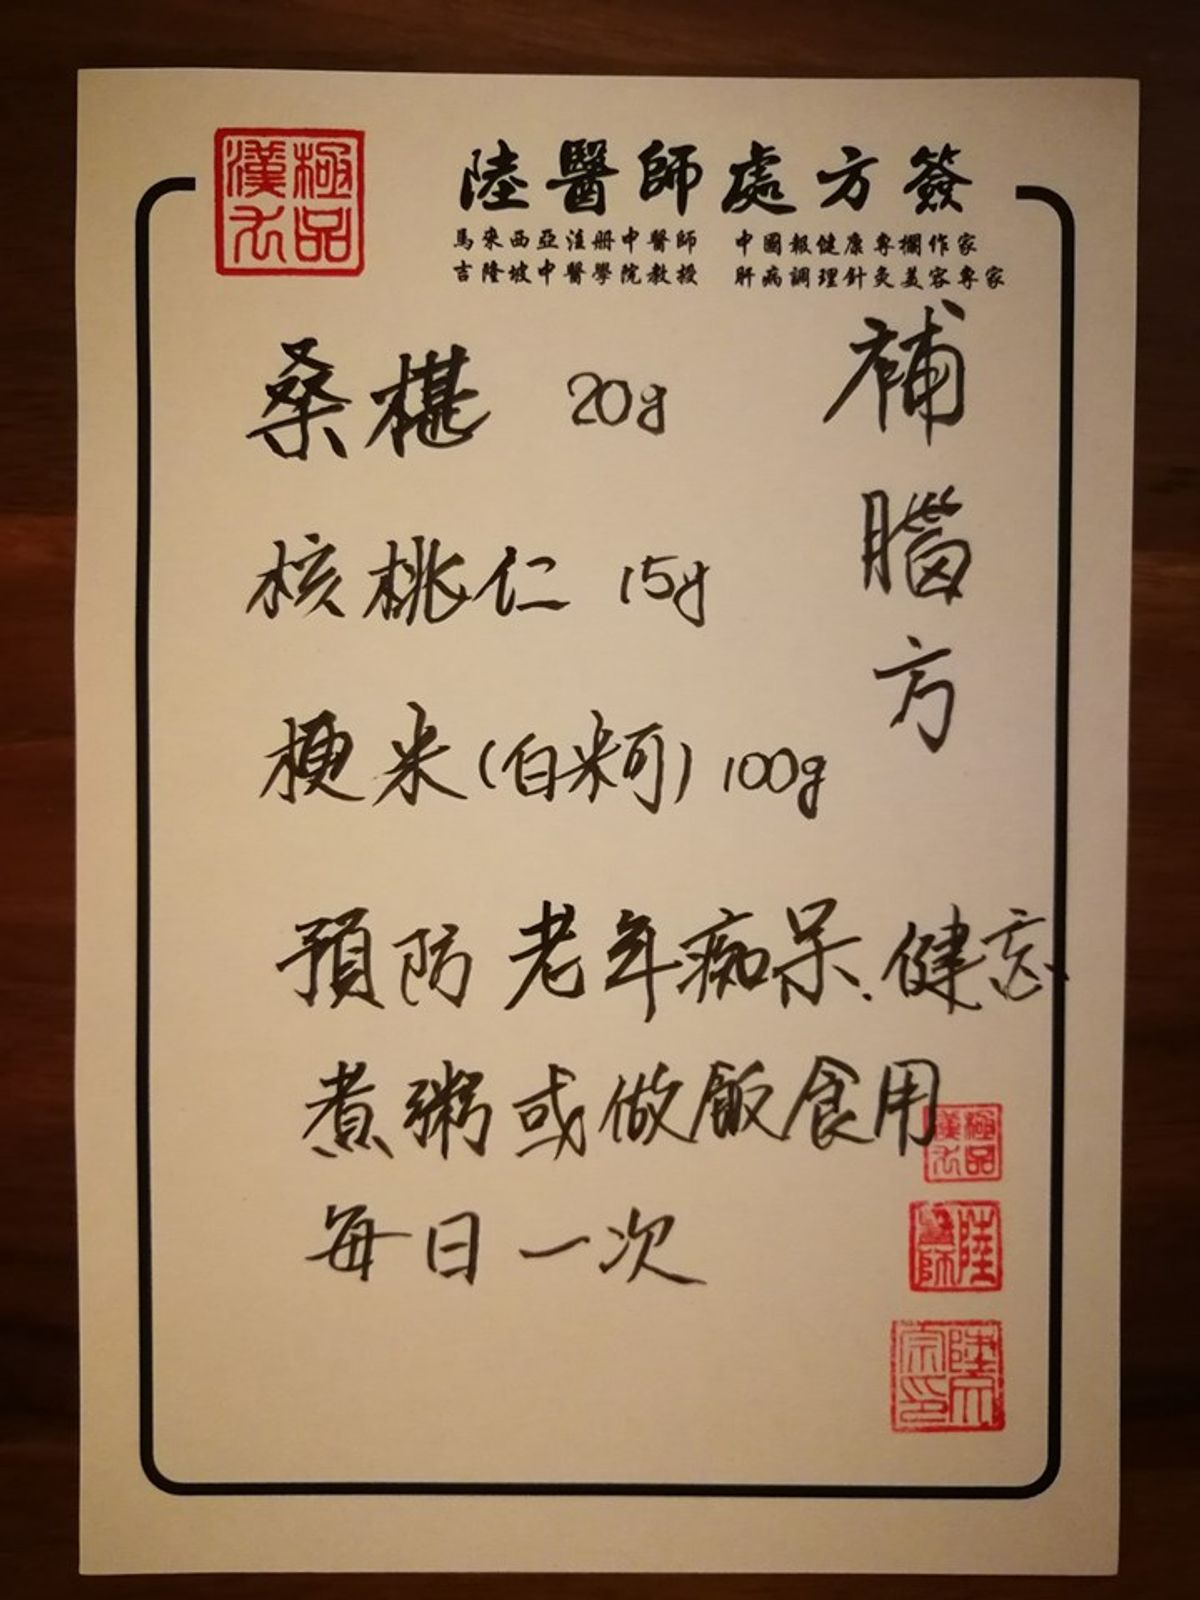 極品
漢方
陸醫師處方簽
馬來西亞注册中醫師 中國報健康專欄作家
吉隆坡中醫學院教授 肝病調理針灸美容專家
補腦方
桑椹 20g
核桃仁 15g
梗米(白米可) 100g
預防老年痴呆.健忘
煮粥或做飯食用
每日一次
極品
漢方
陸
醫師